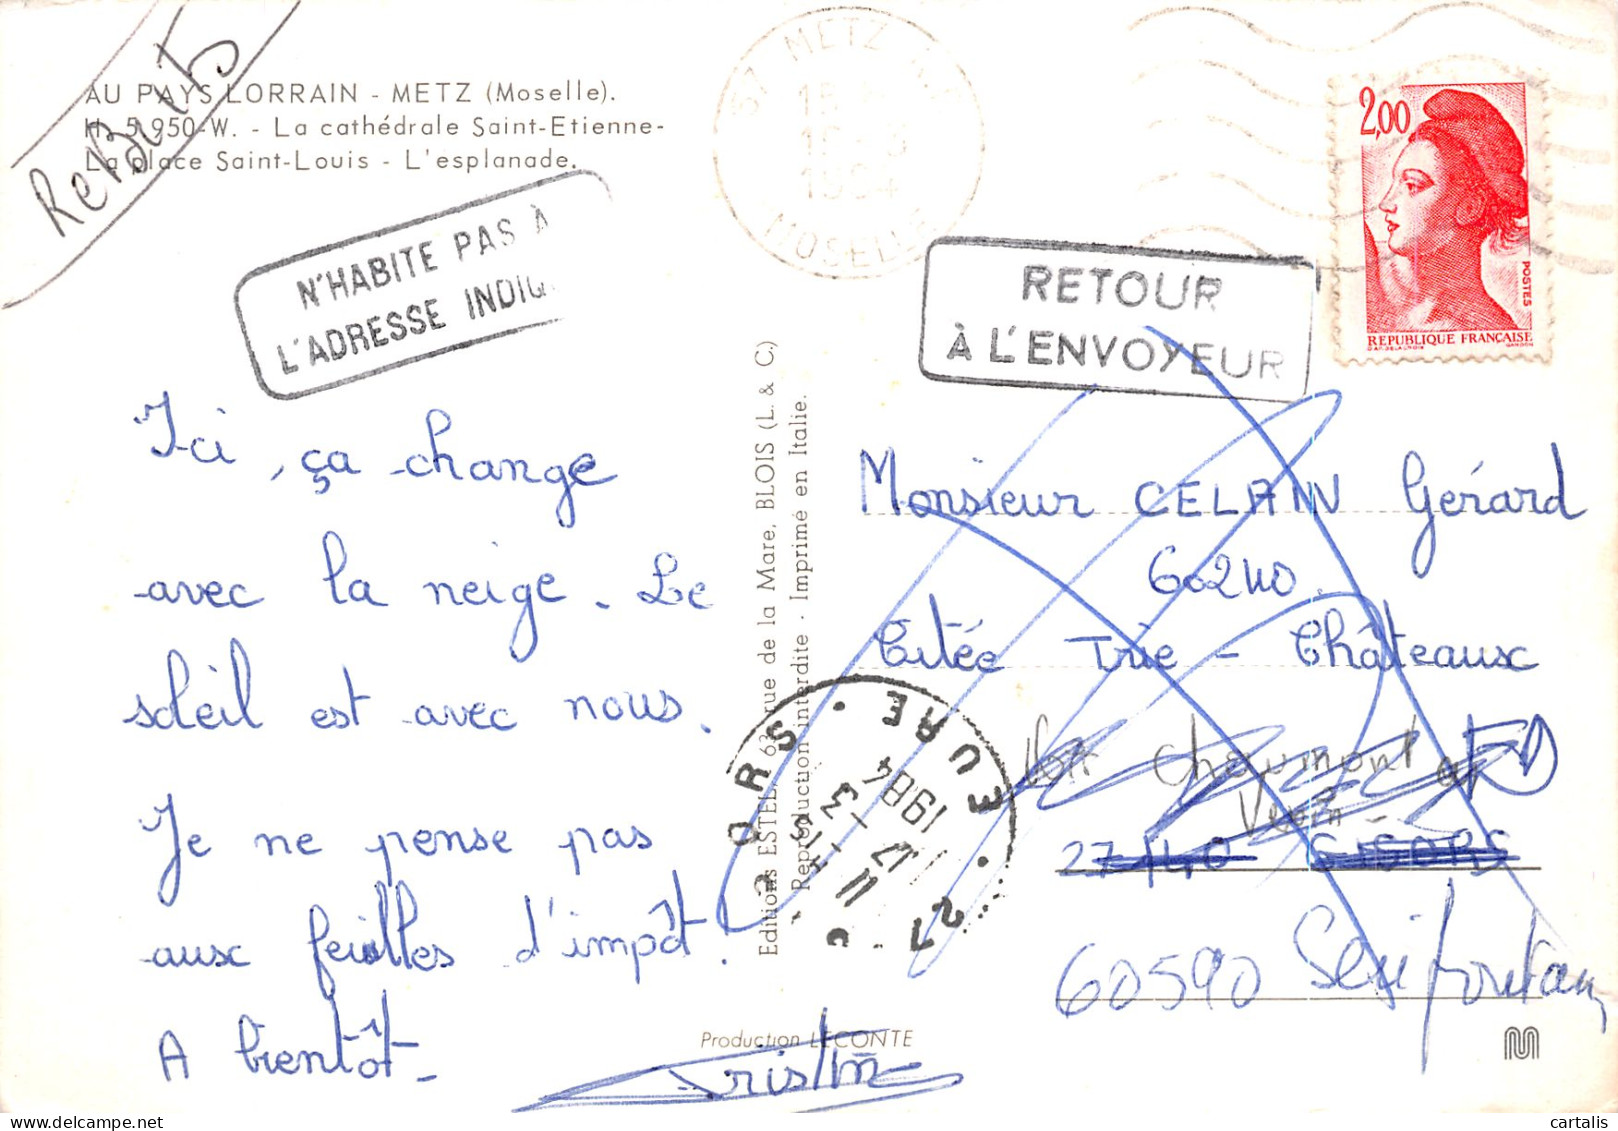 AU PAYS LORRAIN - METZ (Moselle).
H. 5.950-W. - La cathédrale Saint-Etienne-
La place Saint-Louis - L'esplanade.
N'HABITE PAS À
L'ADRESSE INDIQ
Ici, ça change
avec la neige. Le
soleil est avec nous.
Je ne pense pas
aux feuilles d'impôt.
A bientôt.
Editions ESTEL, 63, rue de la Mare, BLOIS (L. & C.)
Reproduction interdite - Imprimé en Italie.
Production LECONTE
57 METZ
1984
MOSELLE
2,00
POSTES
REPUBLIQUE FRANÇAISE
RETOUR
À L'ENVOYEUR
Monsieur CELAIN Gérard
60240
Citée Trie - Châteaux
Chaumont en
Vexin
27140 GISORS
60590
27 GISORS EURE
17 -3
1984
cartalis